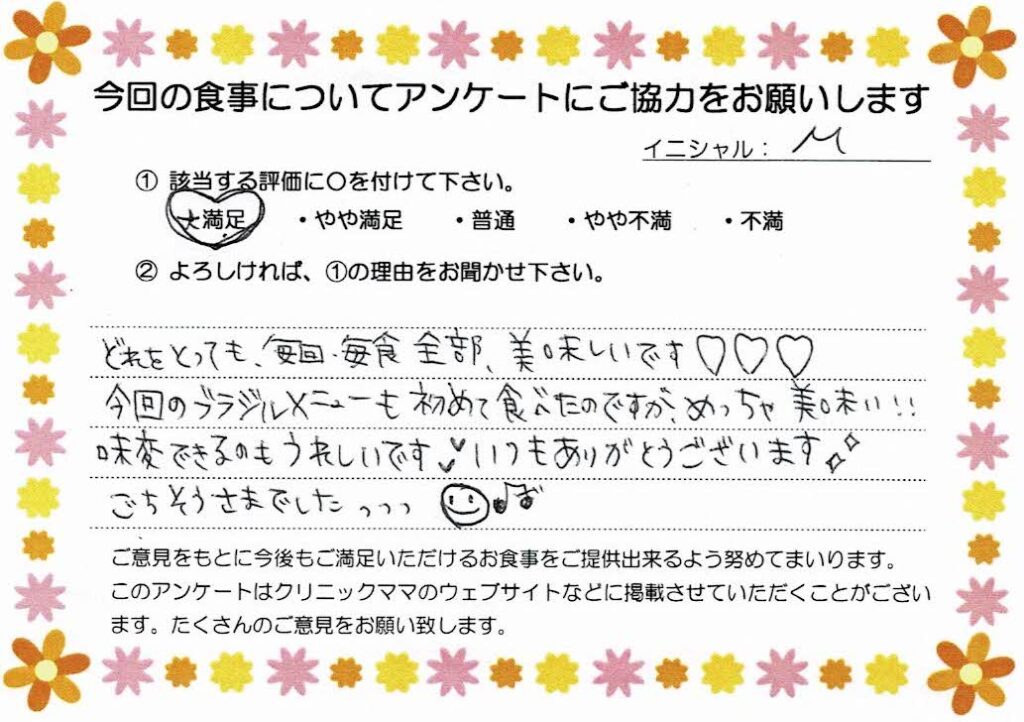 今回の食事についてアンケートにご協力をお願いします
イニシャル： M
① 該当する評価に○を付けて下さい。
大満足 ・やや満足 ・普通 ・やや不満 ・不満
② よろしければ、①の理由をお聞かせ下さい。
どれをとっても、毎回・毎食 全部、美味しいです♡♡♡
今回のブラジルメニューも初めて食べたのですが、めっちゃ美味い!!
味変できるのもうれしいです いつもありがとうございます
ごちそうさまでしたっっっ
ご意見をもとに今後もご満足いただけるお食事をご提供出来るよう努めてまいります。
このアンケートはクリニックママのウェブサイトなどに掲載させていただくことがござい
ます。たくさんのご意見をお願い致します。